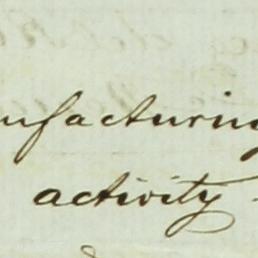 nufacturing
activity -